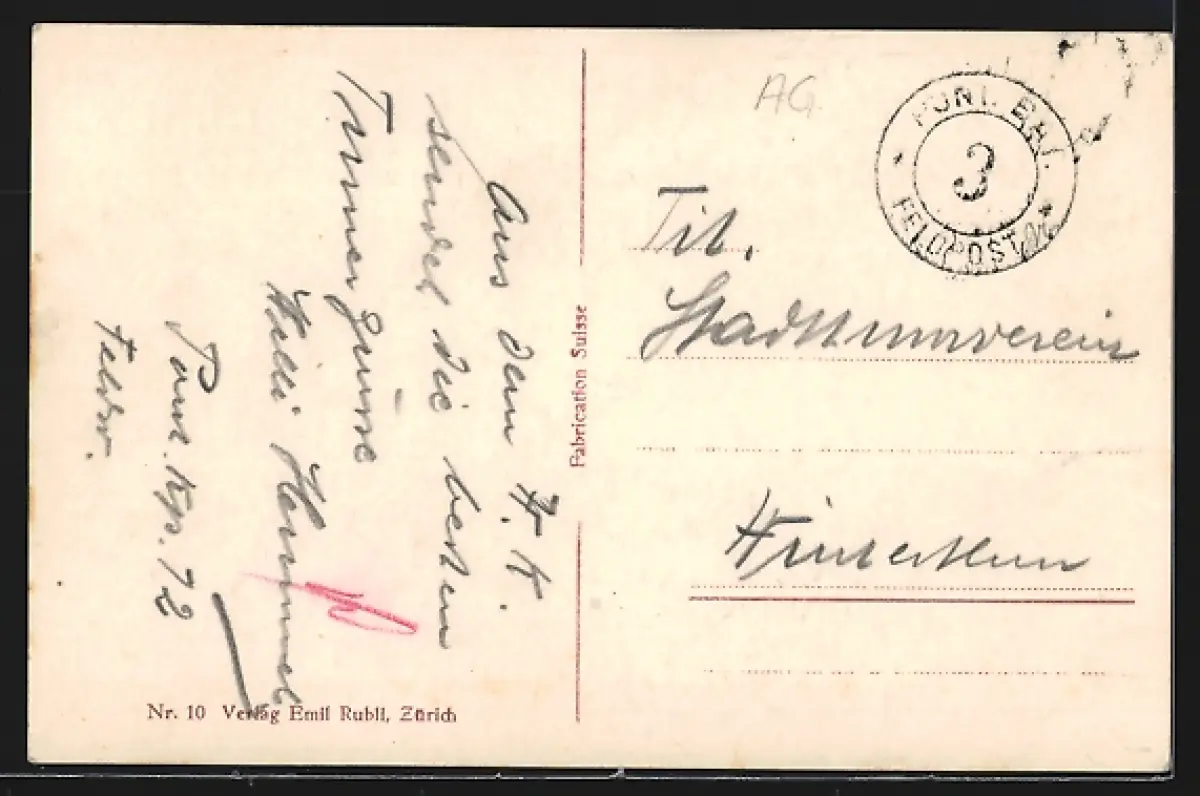 Aus dem W. K.
sendet die besten
Turnergrüsse
Willi Hummel
Pont. Kp. 1/2
Feldw.
Nr. 10 Verlag Emil Rubli, Zürich
Fabrication Suisse
AG
PONT. BAT.
3
FELDPOST
Tit.
Stadtturnverein
Winterthur